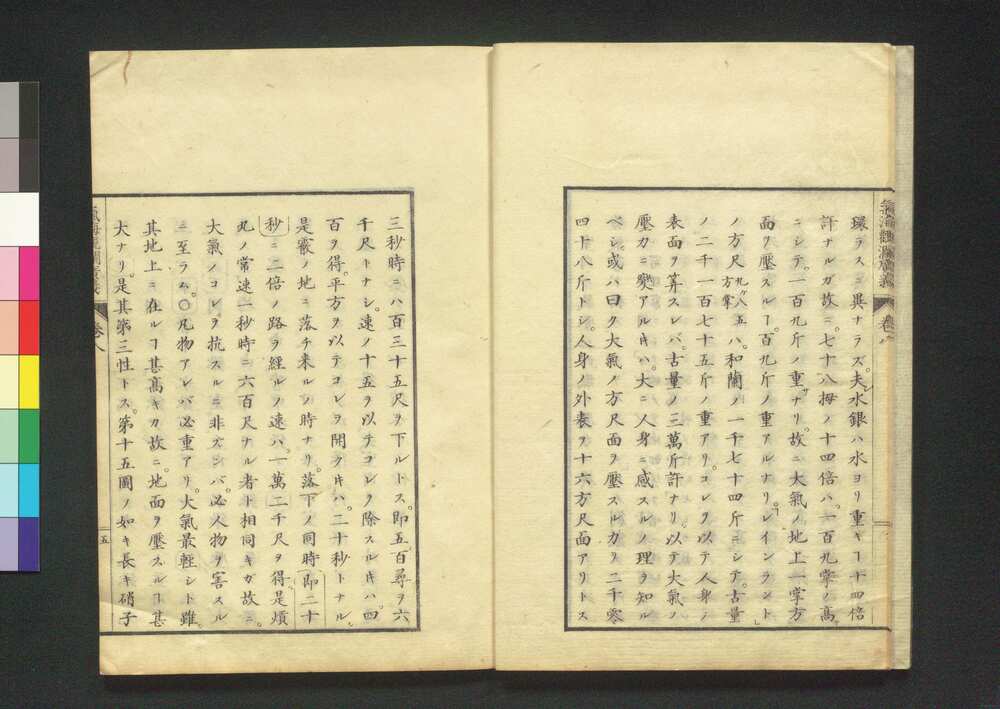 氣海觀瀾廣義 卷八
環ラスニ異ナラズ。夫水銀ハ水ヨリ重キヿ十四倍
許ナルガ故ニ。七十八拇ノ十四倍ハ。一百九掌ノ高
ニシテ。一百九斤ノ重サナリ。故ニ大氣ノ地上一掌方
面ヲ壓スルヿ百九斤ノ重アルナリ。「レインラント」
ノ方尺 九ヶ八五八方掌 ハ。和蘭ノ一千七十四斤ニシテ。古量
ノ二千一百七十五斤ノ重アリ。コレヲ以テ人身ノ
表面ヲ算スレバ。古量ノ三萬斤許ナリ。以テ大氣ノ
壓力ニ變アルキハ。大ニ人身ニ感スルノ理ヲ知ル
ベシ。或ハ曰ク大氣ノ方尺面ヲ壓スル力ヲ二千零
四十八斤トシ。人身ノ外表ヲ十六方尺面アリトス
三秒時ニハ百三十五尺ヲ下ルトス。即五百尋ヲ六
千尺トナシ。速ノ十五ヲ以テコレヲ除スルキハ。四
百ヲ得。平方ヲ以テコレヲ開クキハ。二十秒トナル。
是霰ノ地ニ落チ來ルノ時ナリ。落下ノ同時 即二十
秒 ニ二倍ノ路ヲ經ルノ速ハ。一萬二千尺ヲ得。是熕
丸ノ常速一秒時ニ六百尺ナル者ト相同キガ故ニ。
大氣ノコレヲ抗スルニ非ズンバ。必人物ヲ害スル
ニ至ラム。〇凡物アレバ必重アリ。大氣最輕シト雖。
其地上ニ在ルヿ甚高キガ故ニ。地面ヲ壓スルヿ甚
大ナリ。是其第三性トス。第十五圖ノ如キ長キ硝子
氣海觀瀾廣義 卷八 五